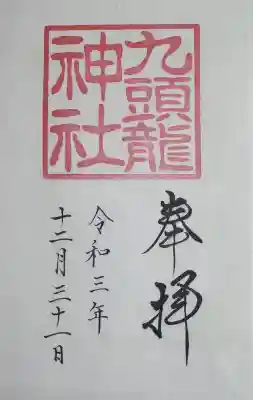 九頭龍
神社
奉拝
令和三年
十二月三十一日